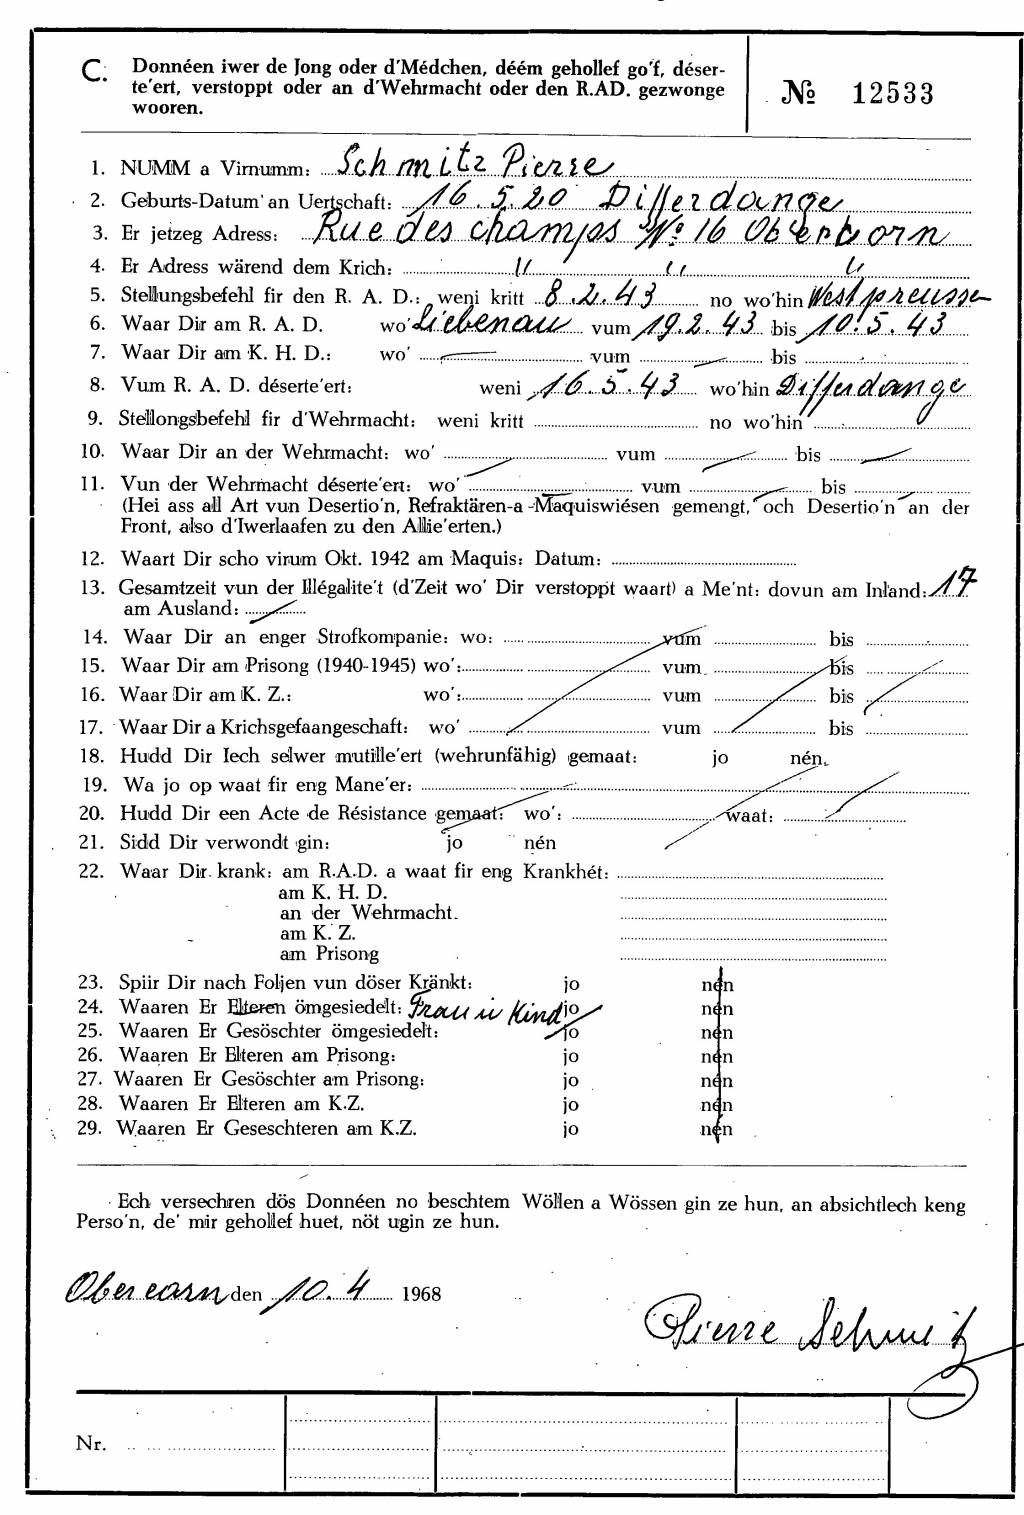 C. Donnéen iwer de Jong oder d'Médchen, déém gehollef go'f, déser-
te'ert, verstoppt oder an d'Wehrmacht oder den R.AD. gezwonge
wooren.
№ 12533
1. NUMM a Virnumm: Schmitz Pierre
2. Geburts-Datum an Uertschaft: 16.5.20 Differdange
3. Er jetzeg Adress: Rue des champs No 16 Obercorn
4. Er Adress wärend dem Krich: " " "
5. Stellungsbefehl fir den R. A. D.: weni kritt 8.2.43 no wo'hin Westpreusse
6. Waar Dir am R. A. D. wo' Liebenau vum 19.2.43 bis 10.5.43
7. Waar Dir am K. H. D.: wo' — vum — bis
8. Vum R. A. D. déserte'ert: weni 16.5.43 wo'hin Differdange
9. Stellongsbefehl fir d'Wehrmacht: weni kritt no wo'hin
10. Waar Dir an der Wehrmacht: wo' vum bis
11. Vun der Wehrmacht déserte'ert: wo' vum bis
(Hei ass all Art vun Desertio'n, Refraktären-a -Maquiswiésen gemengt, och Desertio'n an der
Front, also d'Iwerlaafen zu den Allie'erten.)
12. Waart Dir scho virum Okt. 1942 am Maquis: Datum:
13. Gesamtzeit vun der Illégalite't (d'Zeit wo' Dir verstoppt waart) a Me'nt: dovun am Inland: 17
am Ausland:
14. Waar Dir an enger Strofkompanie: wo: vum bis
15. Waar Dir am Prisong (1940-1945) wo': vum bis
16. Waar Dir am K. Z.: wo': vum bis
17. Waar Dir a Krichsgefaangeschaft: wo' vum bis
18. Hudd Dir Iech selwer mutille'ert (wehrunfähig) gemaat: jo nén
19. Wa jo op waat fir eng Mane'er:
20. Hudd Dir een Acte de Résistance gemaat: wo': waat:
21. Sidd Dir verwondt gin: jo nén
22. Waar Dir krank: am R.A.D. a waat fir eng Krankhét:
am K. H. D.
an der Wehrmacht
am K. Z.
am Prisong
23. Spiir Dir nach Foljen vun döser Kränkt: jo nén
24. Waaren Er Elteren ömgesiedelt: Frau u Kind jo nén
25. Waaren Er Gesöschter ömgesiedelt: jo nén
26. Waaren Er Elteren am Prisong: jo nén
27. Waaren Er Gesöschter am Prisong: jo nén
28. Waaren Er Elteren am K.Z. jo nén
29. Waaren Er Geseschteren am K.Z. jo nén
Ech versechren dös Donnéen no beschtem Wöllen a Wössen gin ze hun, an absichtlech keng
Perso'n, de' mir gehollef huet, nöt ugin ze hun.
Obercorn den 10.4 1968
Pierre Schmitz
Nr.